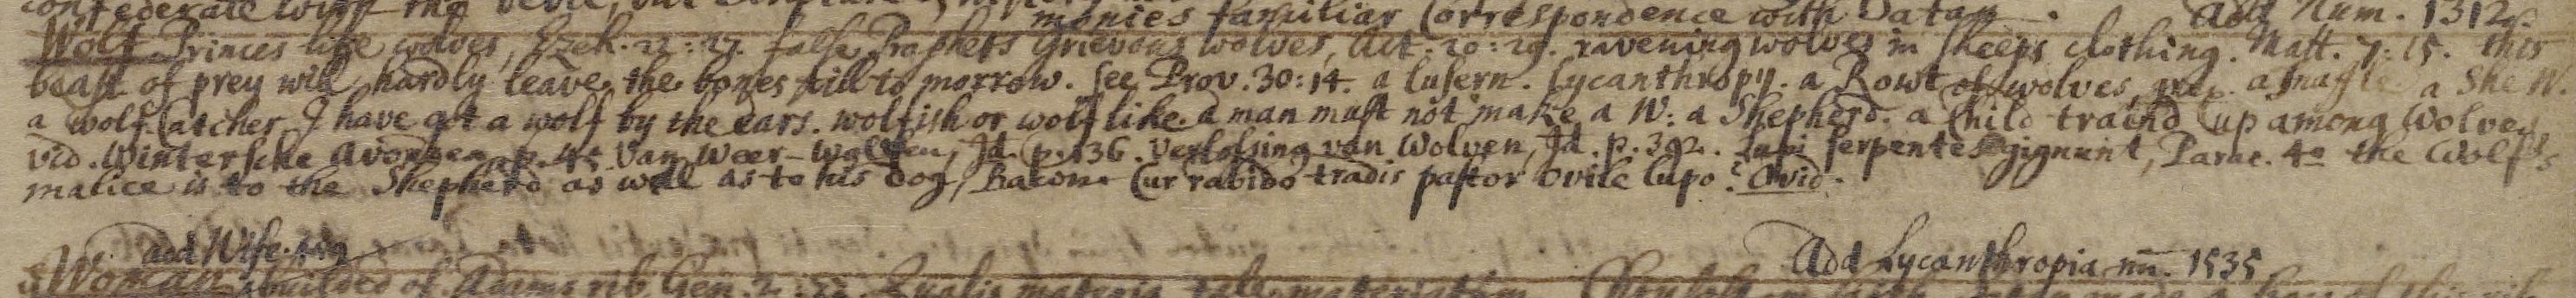 monies familiar Correspondence with Satan. add Num. 1312.
Wolf Princes like wolves, Ezek. 22:27. false Prophets Grievous wolves, Act. 20:29. ravening wolves in sheeps clothing. Matt. 7:15. this
beast of prey will hardly leave the bones till to morrow. see Prov. 30:14. a lusern. lycanthropy. a Rowt of wolves, a She W.
a wolf Catcher I have got a wolf by the ears. wolfish or wolf like. a man must not make a W: a Shepherd. a Child traind up among Wolves
vid. Wintersche Avonden p. 45. Van Weer-Wolven, Id. p. 136. Verlossing van Wolven, Id. p. 392. Lupi serpentes gignunt, Parac. 4o the Wolf's
malice is to the Shepherd as well as to his dog, Bacon. Cur rabido tradis pastor ovile lupo? Ovid.
add Wife.
Add Lycanthropia nu. 1535
Woman builded of Adams rib Gen. 2:22. Qualis materia